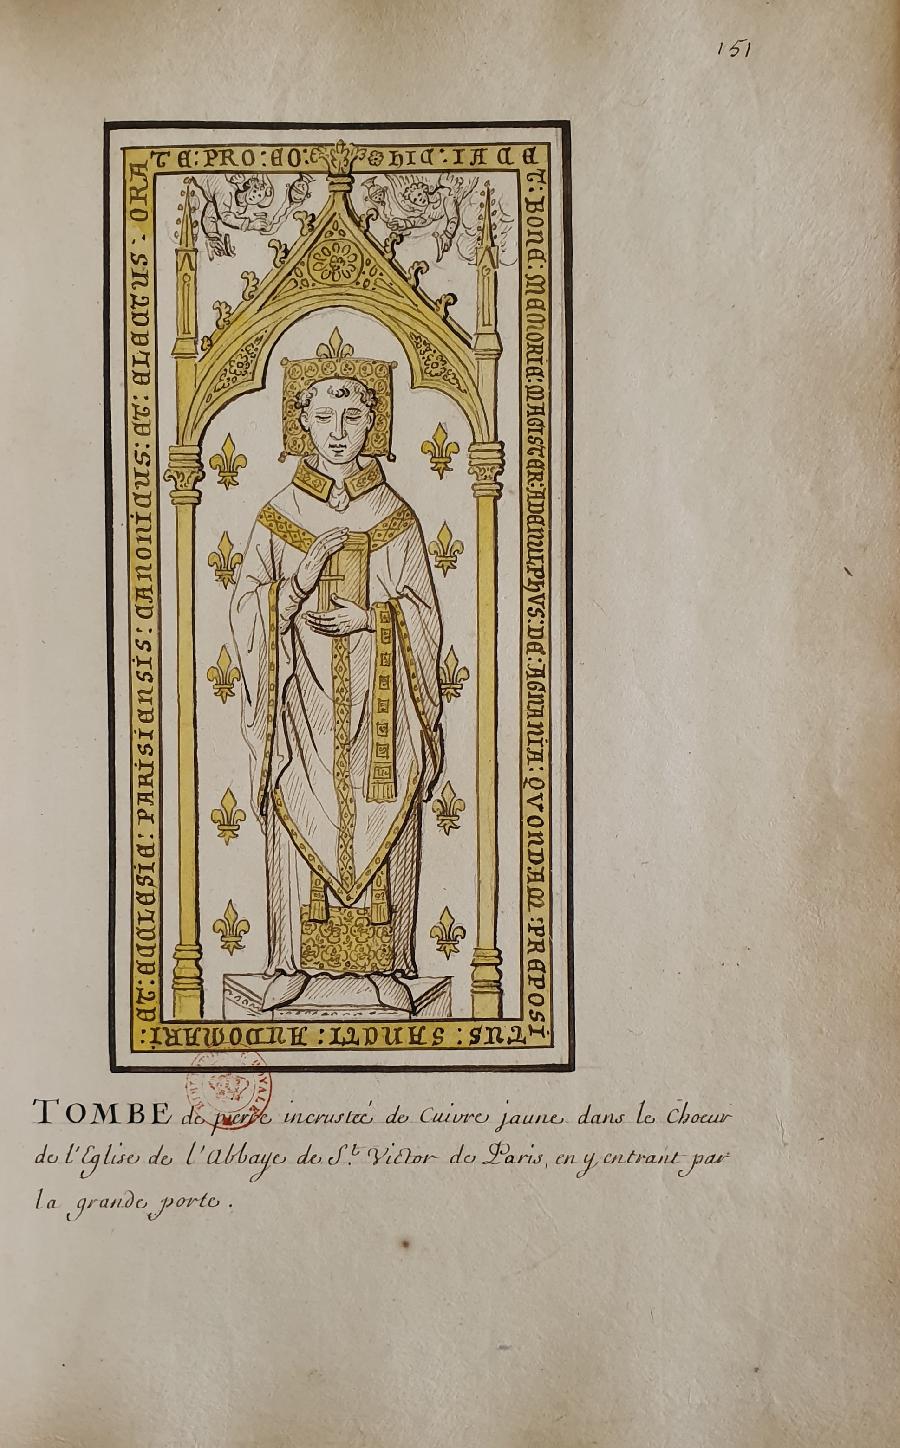 151
HIC: IACE
T: BONE: MEMORIE: MAGISTER: ADENULPHVS: DE: AGNANIA: QVONDAM: PREPOSI
TUS: SANCTI: AUDOMARI:
ET: ECCLESIE: PARISIENSIS: CANONICUS: ET: ELECTUS: ORA
TE: PRO: EO:
TOMBE de pierre incrusteé de Cuivre jaune dans le Choeur
de l'Eglise de l'Abbaye de St. Victor de Paris, en y entrant par
la grande porte.